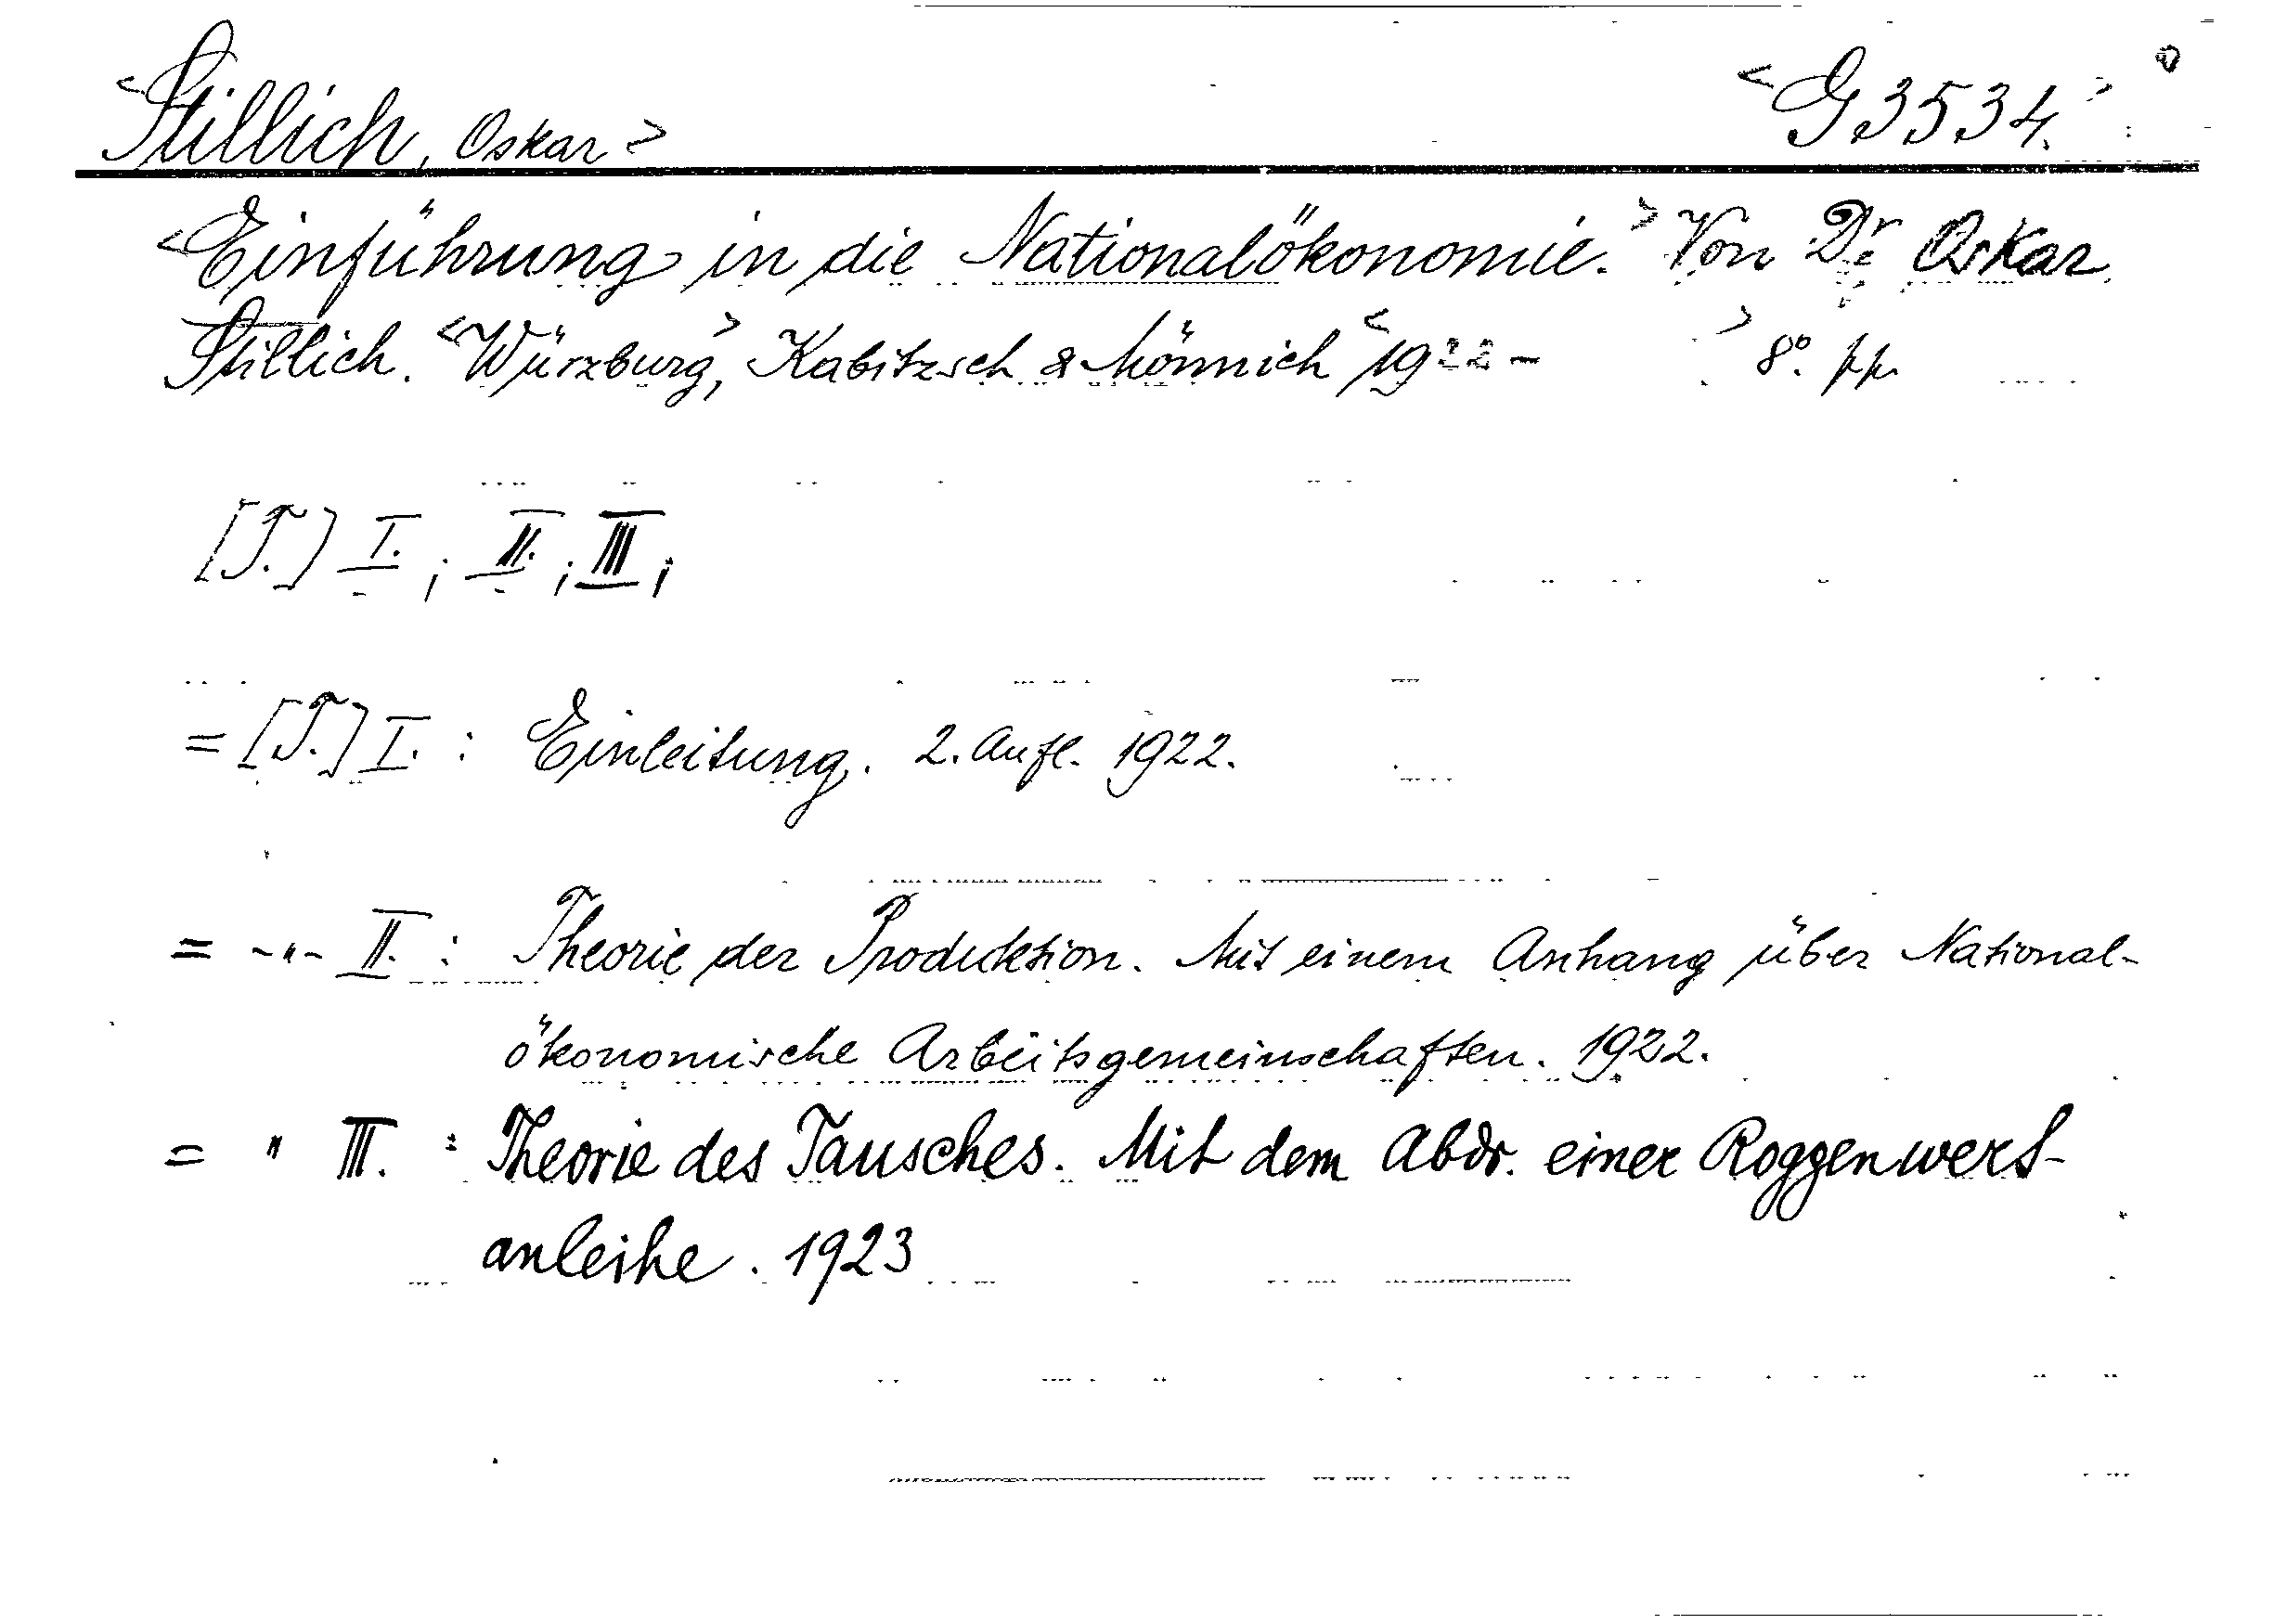 <Stillich, Oskar> <G 3534.>
<Einführung in die Nationalökonomie.> Von Dr. Oskar
Stillich. <Würzburg,> Kabitzsch & Mönnich <1922 - > 8°. pp.
[T.] I. ; II. ; III ;
= [T.] I. : Einleitung. 2. Aufl. 1922.
= -"- II. : Theorie der Produktion. Mit einem Anhang über National-
ökonomische Arbeitsgemeinschaften. 1922.
= " III. : Theorie des Tausches. Mit dem Abdr. einer Roggenwert-
anleihe. 1923